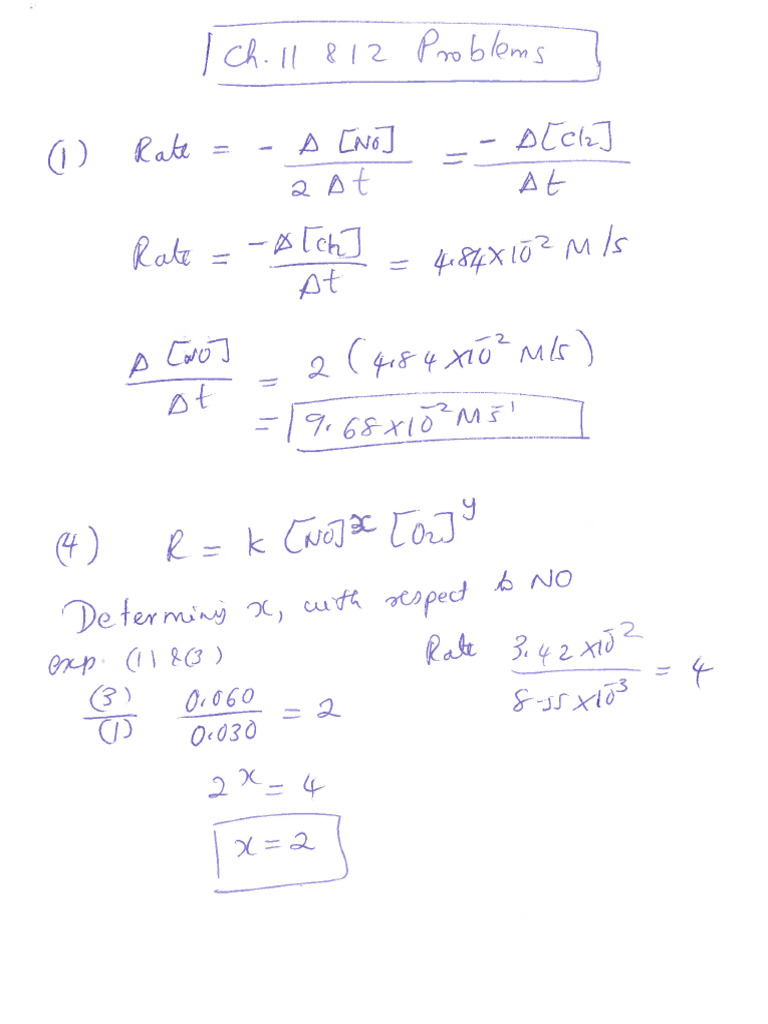 Ch. 11 & 12 Problems
(1) Rate = - Δ[NO] / 2Δt = - Δ[Cl2] / Δt
Rate = -Δ[Cl2] / Δt = 4.84x10^-2 M/s
Δ[NO] / Δt = 2 (4.84x10^-2 M/s)
= 9.68x10^-2 M s^-1
(4) R = k [NO]^x [O2]^y
Determining x, with respect to NO
exp. (1) & (3) Rate 3.42x10^-2 / 8.55x10^-3 = 4
(3) / (1) 0.060 / 0.030 = 2
2^x = 4
x = 2